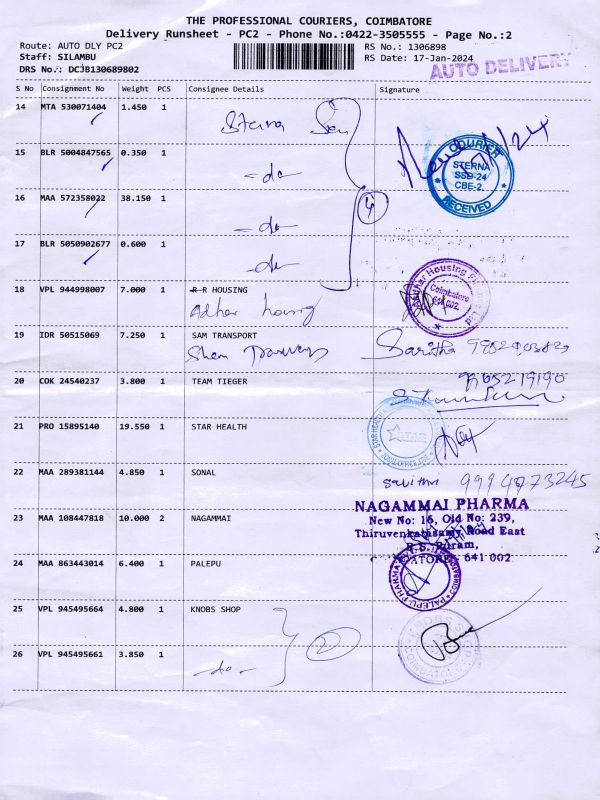 THE PROFESSIONAL COURIERS, COIMBATORE
Delivery Runsheet - PC2 - Phone No.:0422-3505555 - Page No.:2
Route: AUTO DLY PC2 RS No.: 1306898
Staff: SILAMBU RS Date: 17-Jan-2024
DRS No.: DCJB130689802 AUTO DELIVERY
S No Consignment No Weight PCS Consignee Details Signature
14 MTA 530071404 1.450 1 Sterna
15 BLR 5004847565 0.350 1 -do-
COURIER STERNA SSB-24 CBE-2. RECEIVED
16 MAA 572358022 38.150 1 -do- 4
17 BLR 5050902677 0.600 1 -do-
18 VPL 944998007 7.000 1 R R HOUSING
Adhar housing
Aadhar Housing Coimbatore 641 002.
19 IDR 50515069 7.250 1 SAM TRANSPORT
Sham
Saritha
20 COK 24540237 3.800 1 TEAM TIEGER
21 PRO 15895140 19.550 1 STAR HEALTH
STAR
22 MAA 289381144 4.850 1 SONAL
savithri 9994973245
23 MAA 108447818 10.000 2 NAGAMMAI
NAGAMMAI PHARMA
New No: 16, Old No: 239,
Thiruvenkatasamy Road East
R.S. Puram,
641 002
24 MAA 863443014 6.400 1 PALEPU
PALEPU PHARMA
25 VPL 945495664 4.800 1 KNOBS SHOP
2
26 VPL 945495661 3.850 1 -do-